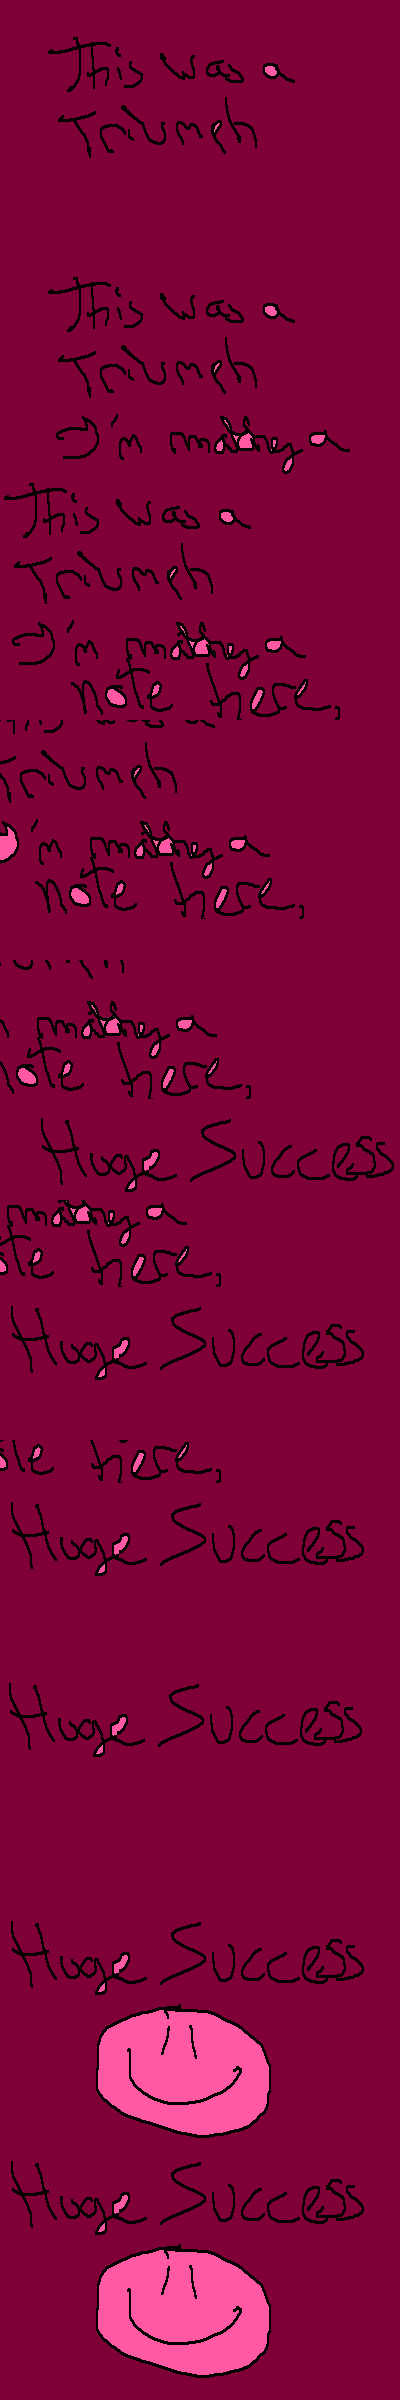 This was a
Triumph
This was a
Triumph
I'm making a
This was a
Triumph
I'm making a
note here,
Triumph
I'm making a
note here,
making a
note here,
Huge Success
making a
here,
Huge Success
here,
Huge Success
Huge Success
Huge Success
Huge Success